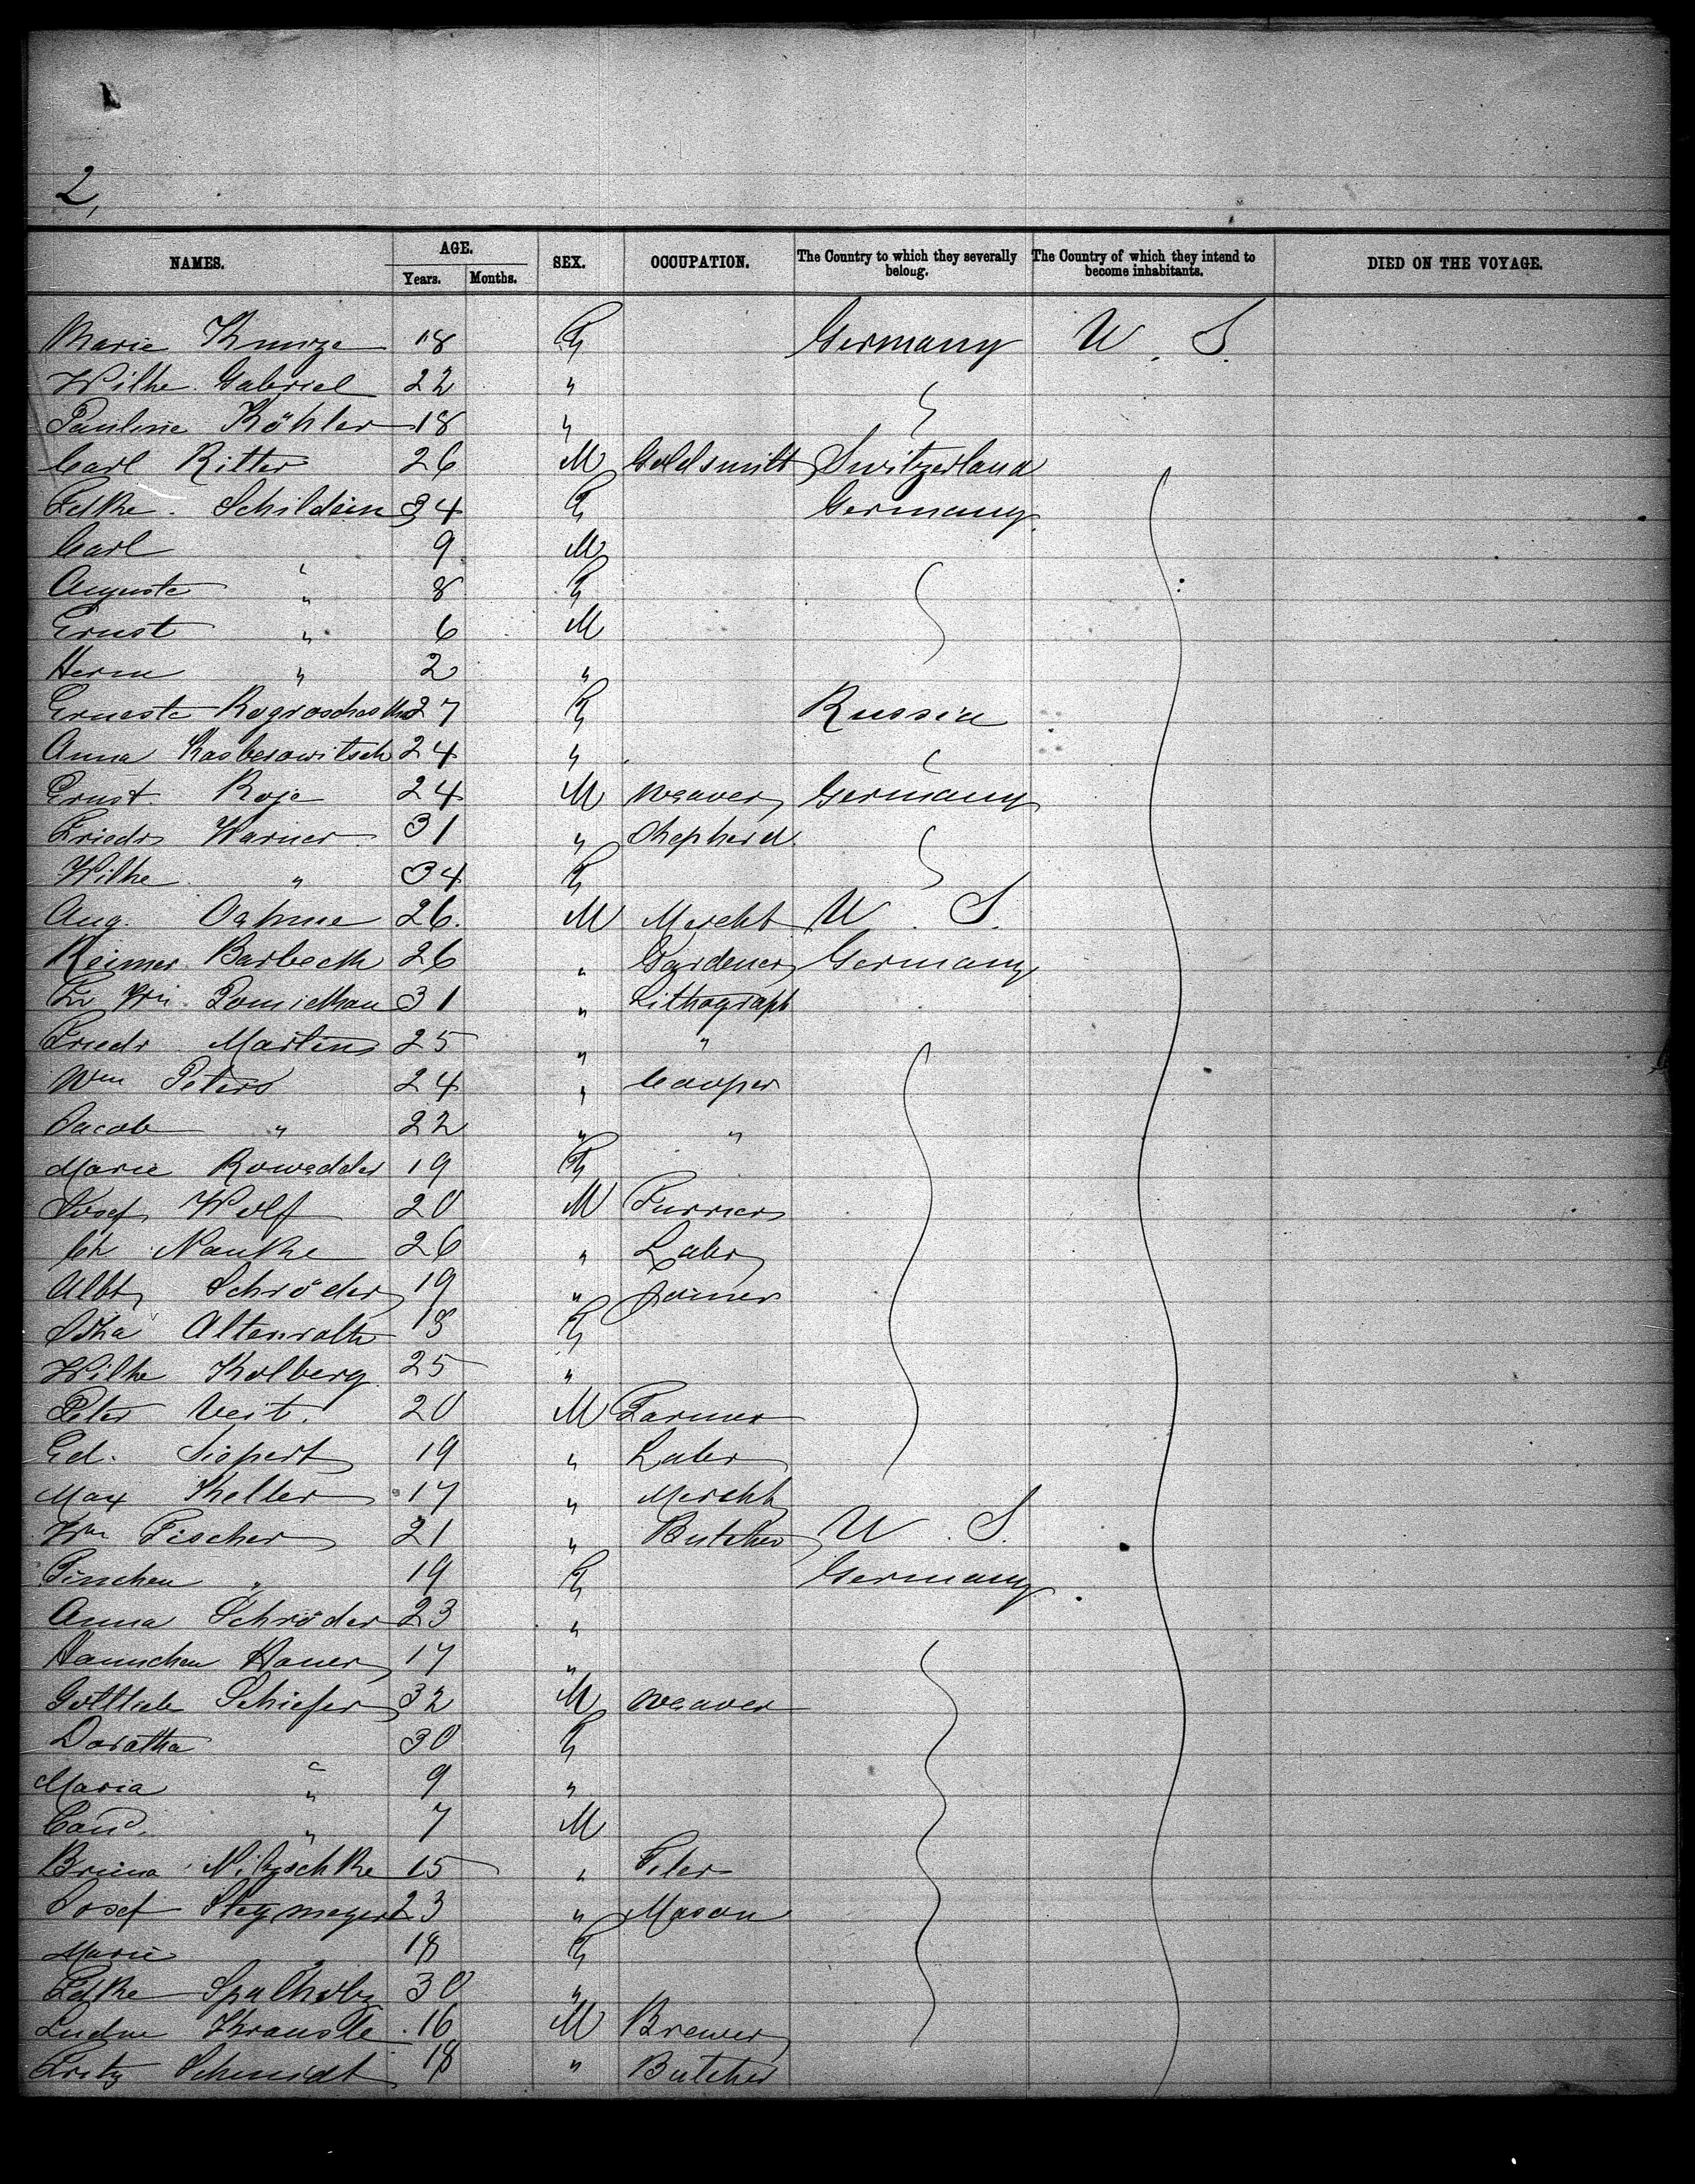 2,
NAMES. AGE. SEX. OCCUPATION. The Country to which they severally belong. The Country of which they intend to become inhabitants. DIED ON THE VOYAGE.
Years. Months.
Marie Kunze 18 F Germany U. S.
Wilhe. Gabriel 22 "
Pauline Köhler 18 "
Carl Ritter 26 M Goldsmith Switzerland
Fdke. 34 F Germany
Carl " 9 M
Auguste " 8 F
Ernst " 6 M
Herm " 2 "
Erneste 27 F Russia
Anna Kasberowitsch 24 "
Ernst. Roje 24 M Weaver Germany
Friedr Warner 31 " Shepherd
Wilhe " 34 F
Aug. Oahme 26 M Mercht U. S.
Reimer Barbeck 26 " Gardener Germany
31 " Lithograph
Friedr Martens 25 " "
Wm Peters 24 " Cooper
Jacob " 22 " "
Marie Rowedder 19 F
Josef Wolf 20 M Furrier
Ch Nauke 26 " Labr
Albt Schröder 19 " Joiner
Altenrath 18 F
Wilhe Kolberg 25 "
Peter Veit. 20 M Farmer
Ed. Siepert 19 " Labr
Max Keller 17 " Mercht
Wm Fischer 21 " Butcher U. S.
Pinchen " 19 F Germany
Anna Schröder 23 "
Hannchen Hauer 17 "
Gottlieb Schiefer 32 M Weaver
Doratha " 30 F
Maria " 9 "
" 7 M
Bruno Nitzschke 15 "
Josef Stegmeyer 23 " Mason
Marie " 18 F
Fdke 30 "
Ludw 16 M Brewer
Fritz Schmidt 18 " Butcher